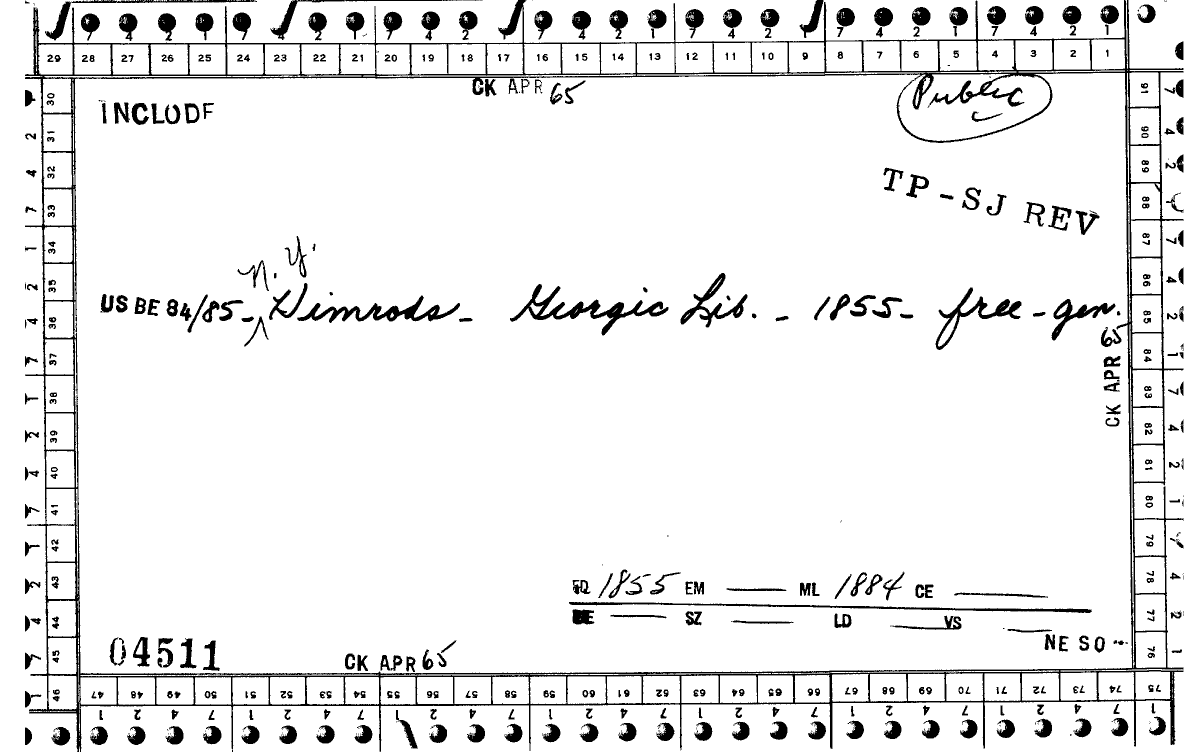 7 4 2 1 7 4 2 1 7 4 2 1 7 4 2 1 7 4 2 1 7 4 2 1
29 28 27 26 25 24 23 22 21 20 19 18 17 16 15 14 13 12 11 10 9 8 7 6 5 4 3 2 1
CK APR 65
Public
INCLUDE
TP-SJ REV
N.Y.
US BE 84/85- Dimrods - Georgic Lib. - 1855 - free - gen.
CK APR 65
FD 1855 EM ML 1884 CE
DE SZ LD VS
NE SO
04511 CK APR 65
30 31 32 33 34 35 36 37 38 39 40 41 42 43 44 45 46
91 90 89 88 87 86 85 84 83 82 81 80 79 78 77 76
47 48 49 50 51 52 53 54 55 56 57 58 59 60 61 62 63 64 65 66 67 68 69 70 71 72 73 74 75